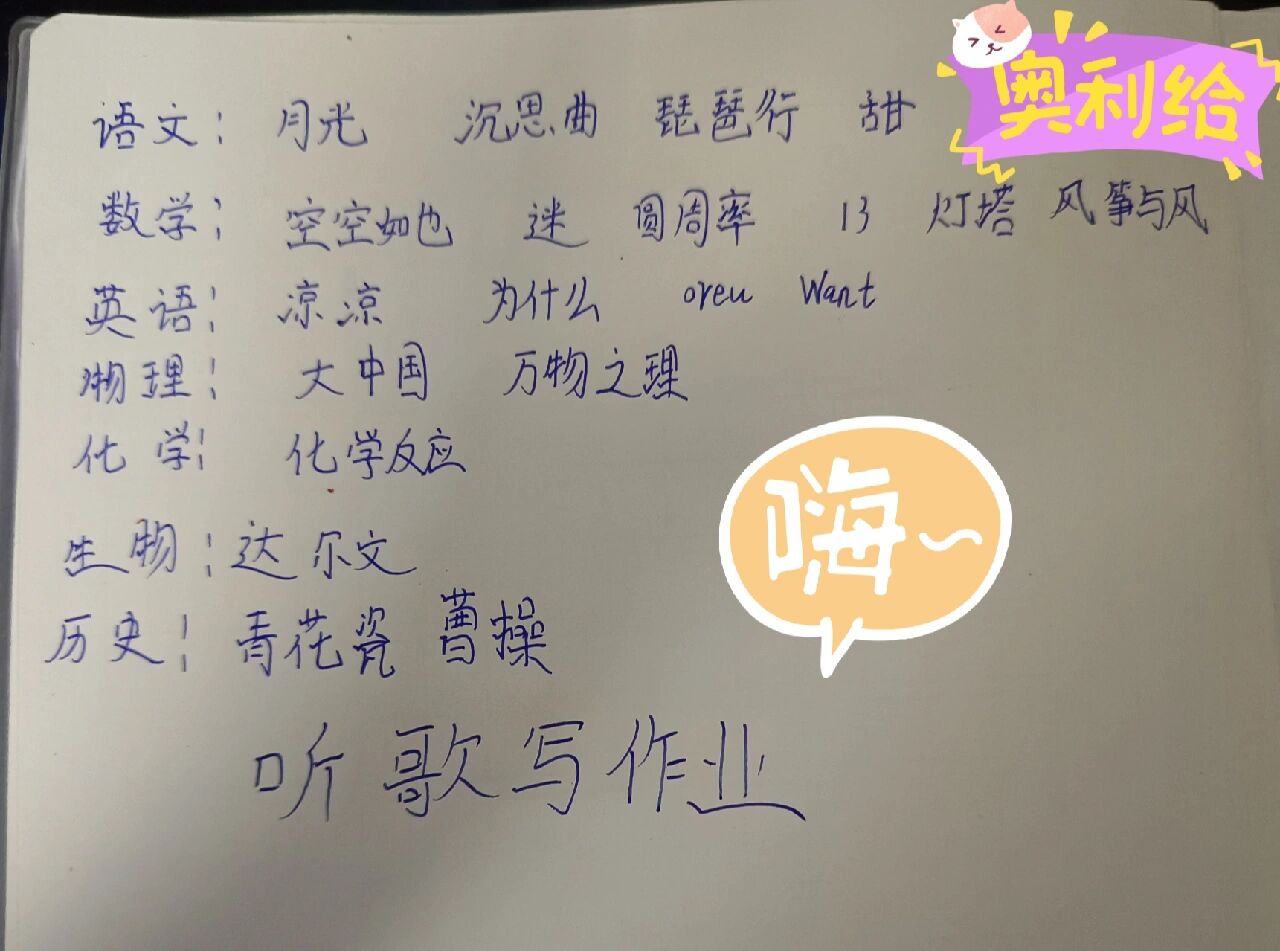 奥利给
语文： 月光 沉思曲 琵琶行 甜
数学： 空空如也 迷 圆周率 13 灯塔 风筝与风
英语： 凉凉 为什么 oreu Want
物理： 大中国 万物之理
化学： 化学反应
嗨~
生物：达尔文
历史： 青花瓷 曹操
听歌写作业